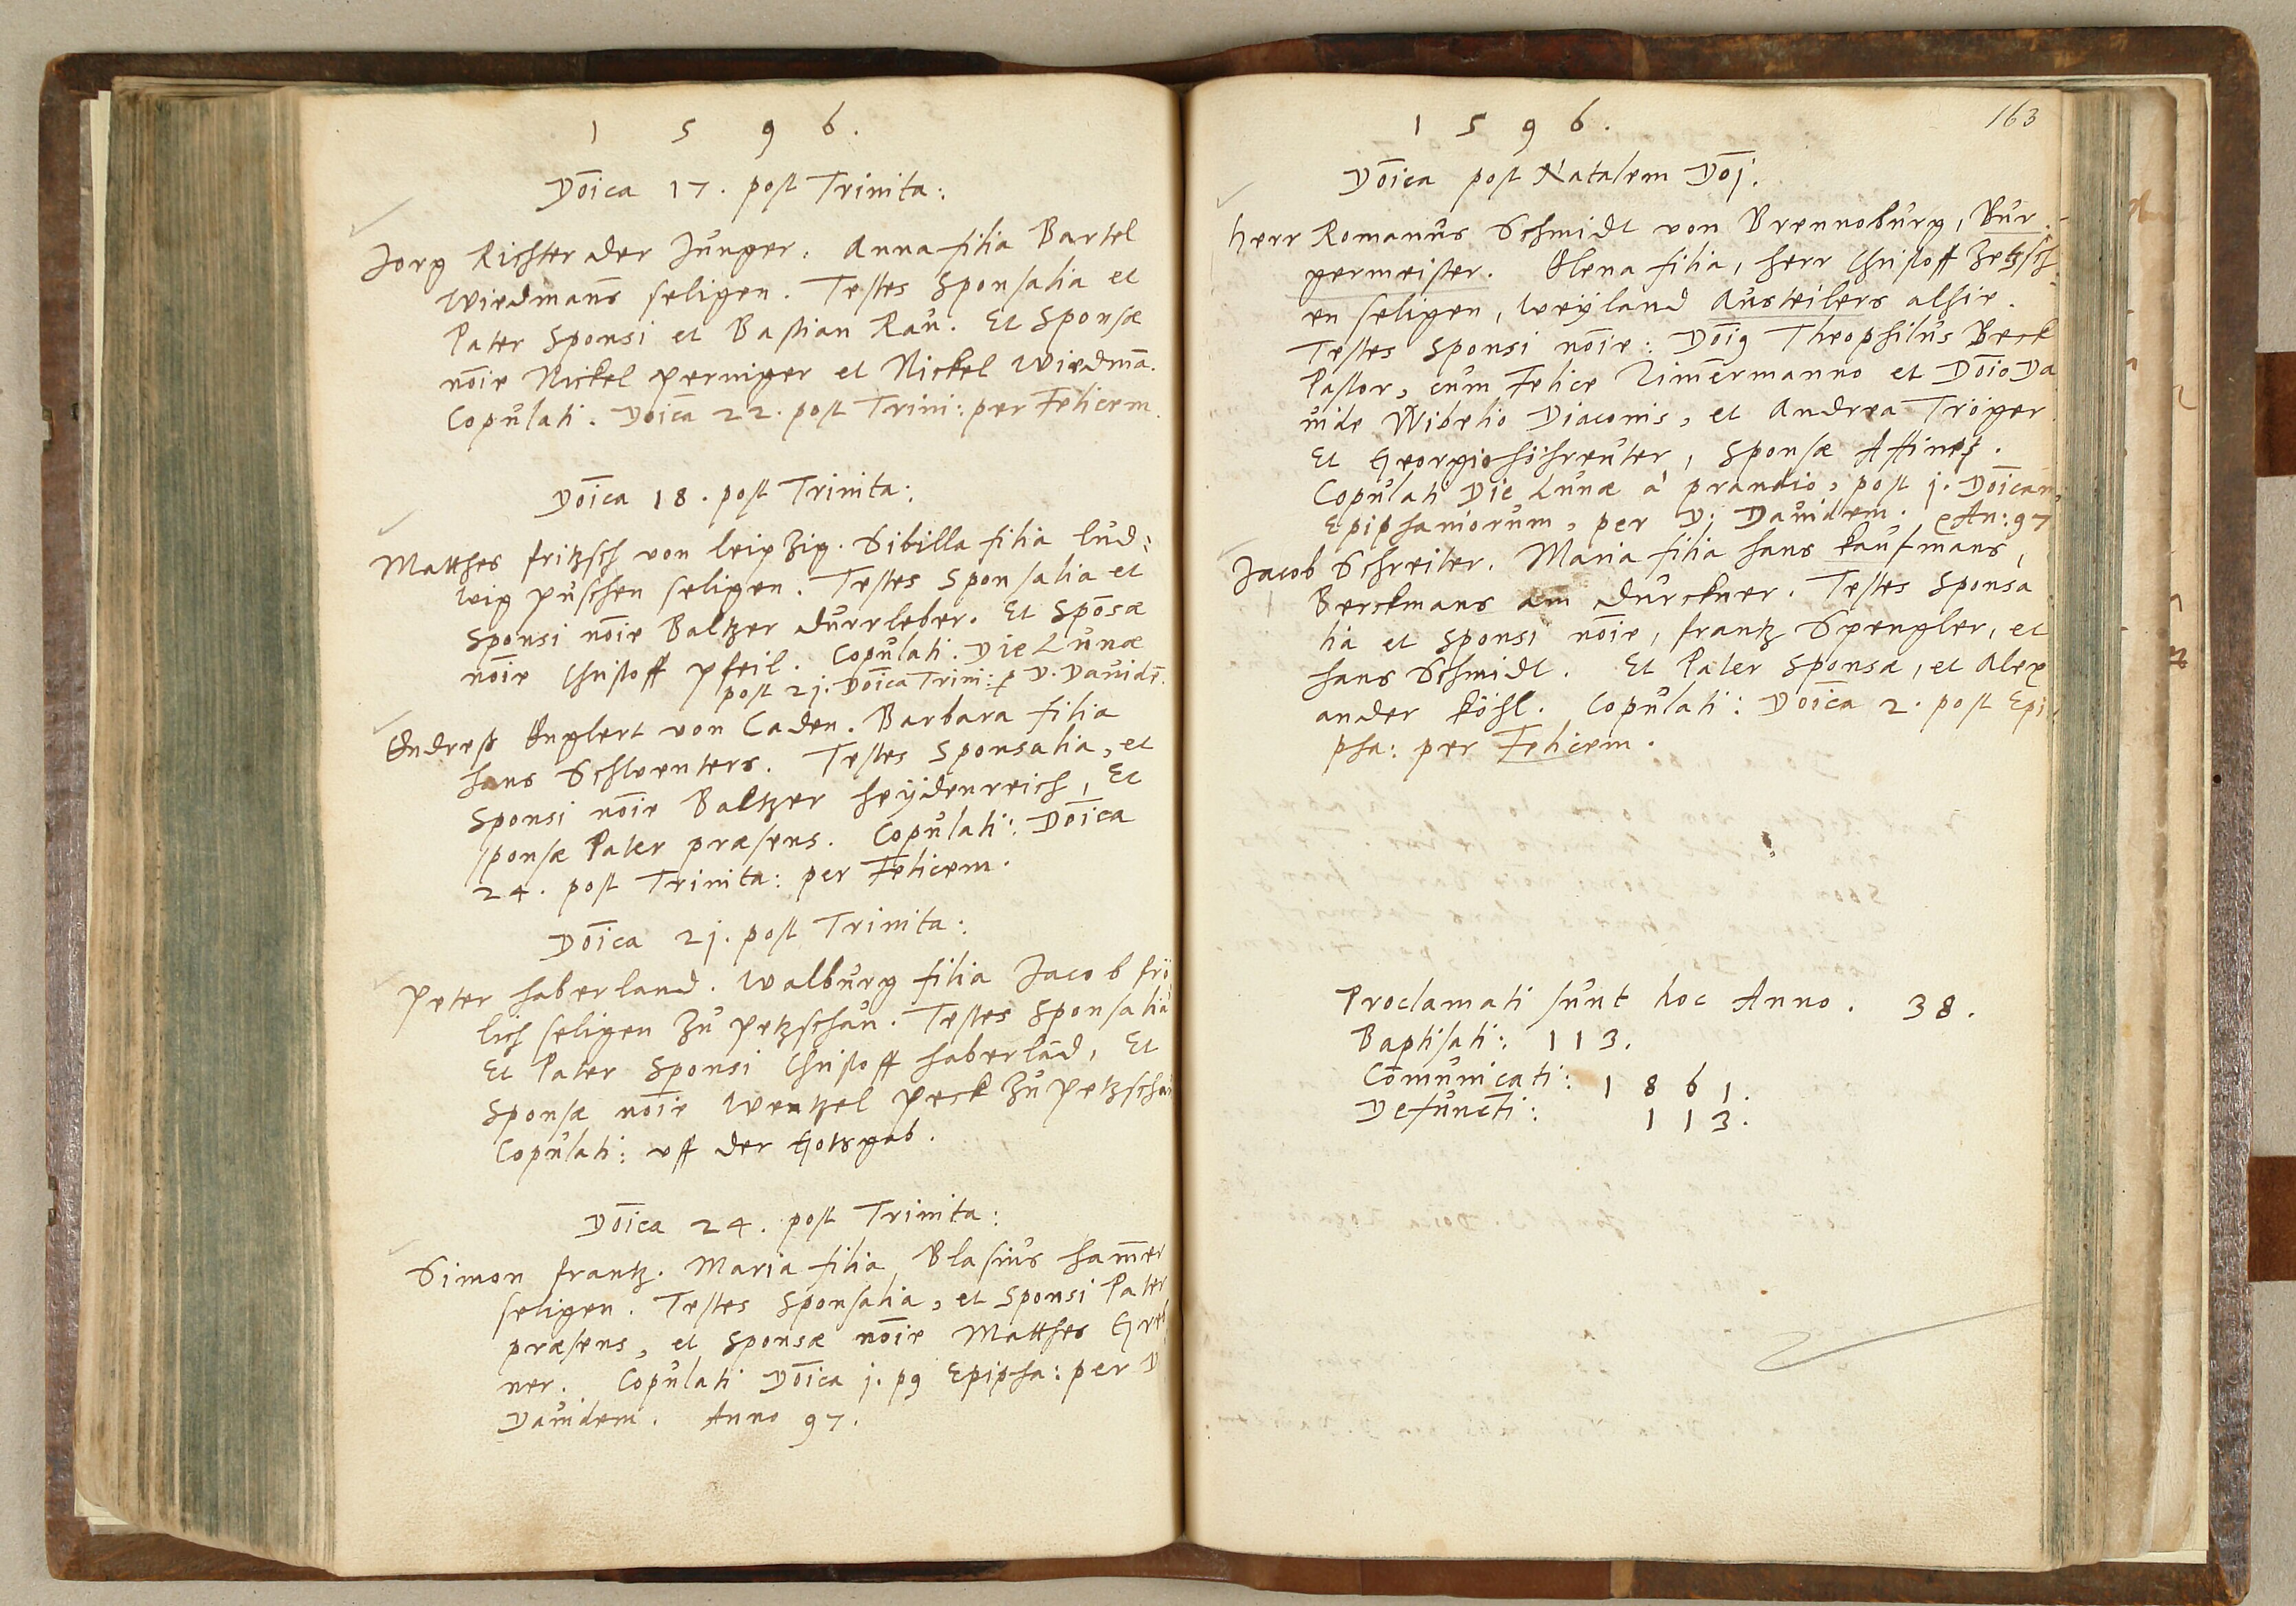 1 5 9 6.
Dōica 17. post Trinita:
Jorg Richter der Junger. Anna filia Bartel
Wiedmans seligen. Testes Sponsalia et
Pater Sponsi et Bastian Rau. Et Sponsæ
nōie Nickel Perniger et Nickel Wiedmā.
Copulati. Doica 22. post Trini: per Felicem.
Dōica 18. post Trinita:
Matthes fritzsch von leipzig. Sibilla filia lud:
wig puschen seligen. Testes Sponsalia et
Sponsi nōie Baltzer durrleber. Et Spōsæ
nōie Christoff Pfeil. Copulati. Die Lunæ
post 2j. Dōica Trini: p D. Dauidē.
Andreß Englert von Caden. Barbara filia
hans Schlventers. Testes Sponsalia, et
Sponsi nōie Baltzer heÿdenreich, Et
sponsæ Pater præsens. Copulati: Dōica
24. post Trinita: per Felicem.
Dōica 2j. post Trinita:
Peter haberland. Walburg filia Jacob frö
lich seligen zu Petzschau. Testes Sponsalia
Et Pater Sponsi Christoff haberlād, Et
Sponsæ nōie Wentzel Peck zu Petzschau
Copulati: vff der Gotsgab.
Dōica 24. post Trinita:
Simon frantz. Maria filia Blasius ham̄er
seligen. Testes Sponsalia, et Sponsi Pater
præsens, et Sponsæ nōie Matthes Greb
ner. Copulati Dōica j. p9 Epipha: per D
Dauidem. Anno 97.
163
1 5 9 6.
Dōica post Natalem Dōj.
Herr Romanus Schmidt von Brennoburg, Bur
germeister. Elena filia, herr Christoff Zetzsch
en seligen, weÿland Austeilers alhie.
Testes Sponsi nōie: Dōi9 Theophilus Beck
Pastor, cum Felice Zimēermanno et Dōio Da
uide Wibelio Diaconis, et Andrea Tröger
Et Georgio höhreuter, Sponsæ Affines.
Copulati Die Lunæ à prandio, post j. Dōicam
Epiphaniorum, per D. Dauidem. An: 97
Jacob Schreiter. Maria filia hans kaufmans,
Berckmans am durckner. Testes Sponsa
lia et Sponsi nōie, frantz Spengler, et
hans Schmidt. Et Pater Sponsæ, et Alex
ander köhl. Copulati: Dōica 2. post Epi
pha: per Felicem.
Proclamati sunt hoc Anno. 38.
Baptisati: 113.
Com̄unicati: 1 8 6 1.
Defuncti: 1 1 3.